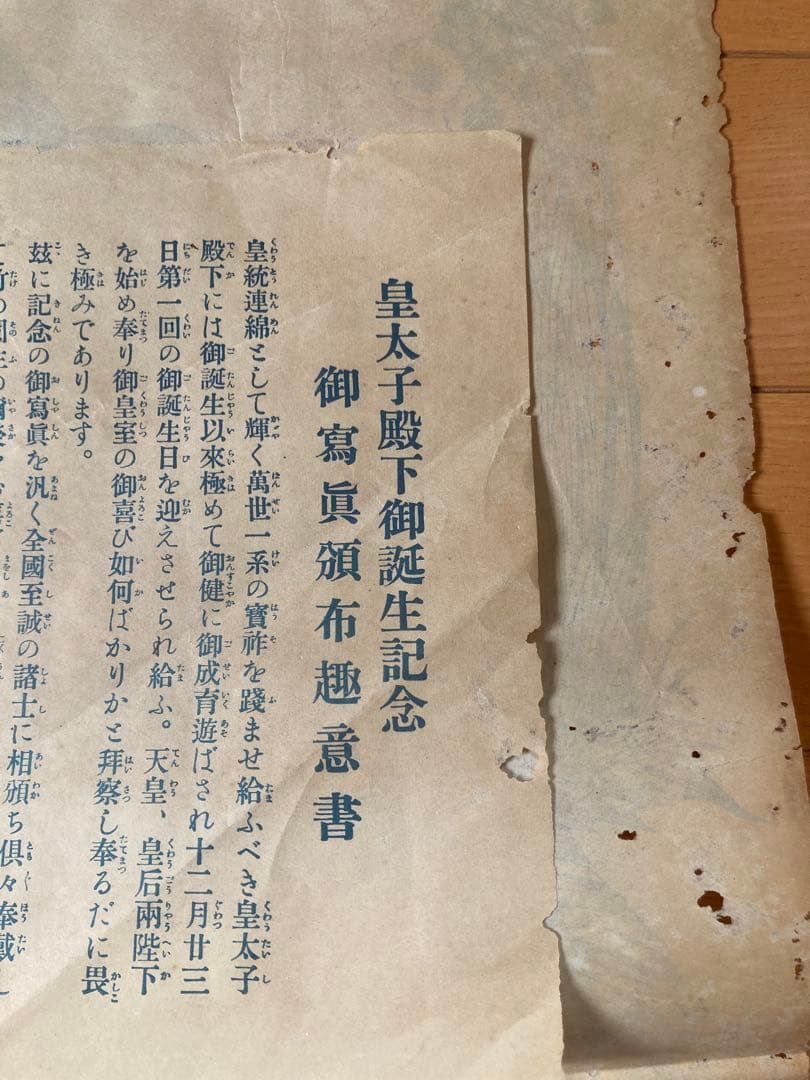 皇太子殿下御誕生記念
御寫眞頒布趣意書
皇統連綿として輝く萬世一系の寶祚を踐ませ給ふべき皇太子
殿下には御誕生以來極めて御健に御成育遊ばされ十二月廿三
日第一回の御誕生日を迎えさせられ給ふ。天皇、皇后兩陛下
を始め奉り御皇室の御喜び如何ばかりかと拜察し奉るだに畏
き極みであります。
玆に記念の御寫眞を汎く全國至誠の諸士に相頒ち俱々奉戴し